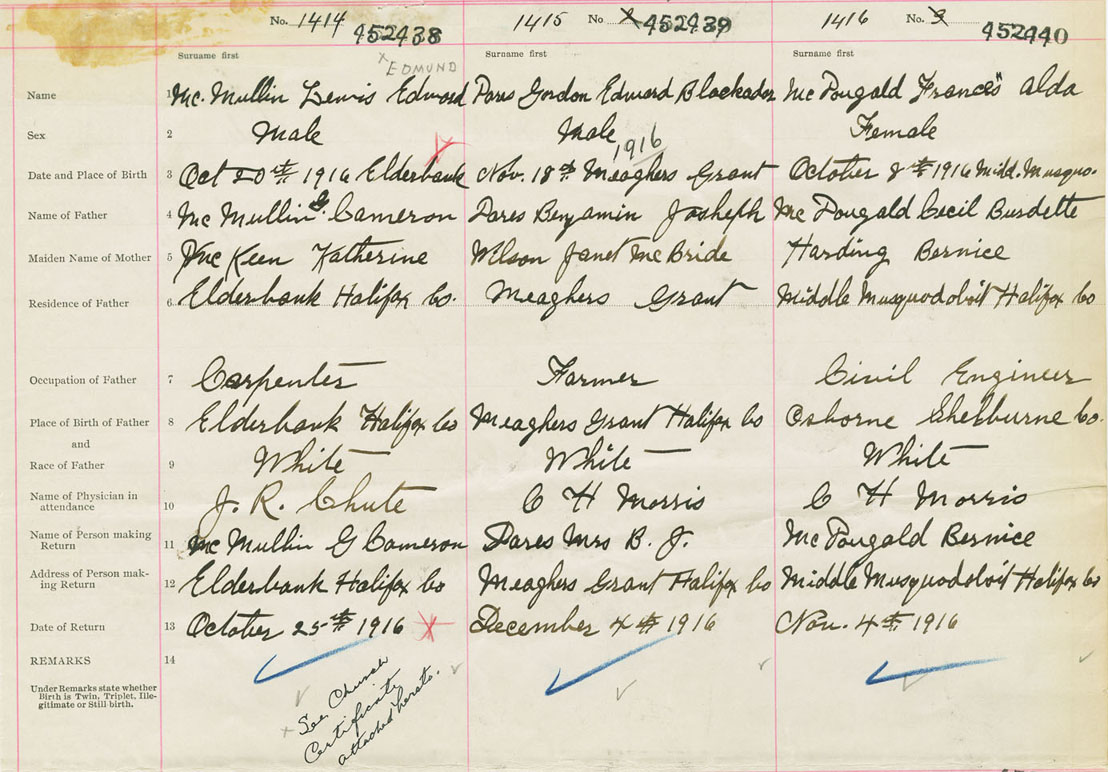 No. 1414 452438 1415 No 2 452439 1416 No. 3 452440
Surname first Surname first Surname first
x EDMUND
Name 1 Mc. Mullin Lewis Edward Pares Gordon Edward Blackadar Mc Dougald Frances" Alda
Sex 2 Male Male Female
1916
Date and Place of Birth 3 Oct 20th 1916 Elderbank Nov. 18th Meaghers Grant October 8th 1916 Midd. Musquo.
Name of Father 4 Mc Mullin G. Cameron Dares Benjamin Josheph Mc Dougald Cecil Burdette
Maiden Name of Mother 5 McKeen Katherine Wilson Janet McBride Harding Bernice
Residence of Father 6 Elderbank Halifax Co. Meaghers Grant Middle Musquodoboit Halifax Co
Occupation of Father 7 Carpenter Farmer Civil Engineer
Place of Birth of Father 8 Elderbank Halifax Co Meaghers Grant Halifax Co Osborne Shelburne Co.
and
Race of Father 9 White White White
Name of Physician in
attendance 10 J. R. Chute C H Morris C H Morris
Name of Person making
Return 11 Mc Mullin G Cameron Dares Mrs B. J. McDougald Bernice
Address of Person mak-
ing Return 12 Elderbank Halifax Co Meaghers Grant Halifax Co Middle Musquodoboit Halifax Co
Date of Return 13 October 25th 1916 December 4th 1916 Nov. 4th 1916
REMARKS 14
Under Remarks state whether
Birth is Twin, Triplet, Ille-
gitimate or Still-birth.
x See Church
Certificate
attached hereto.